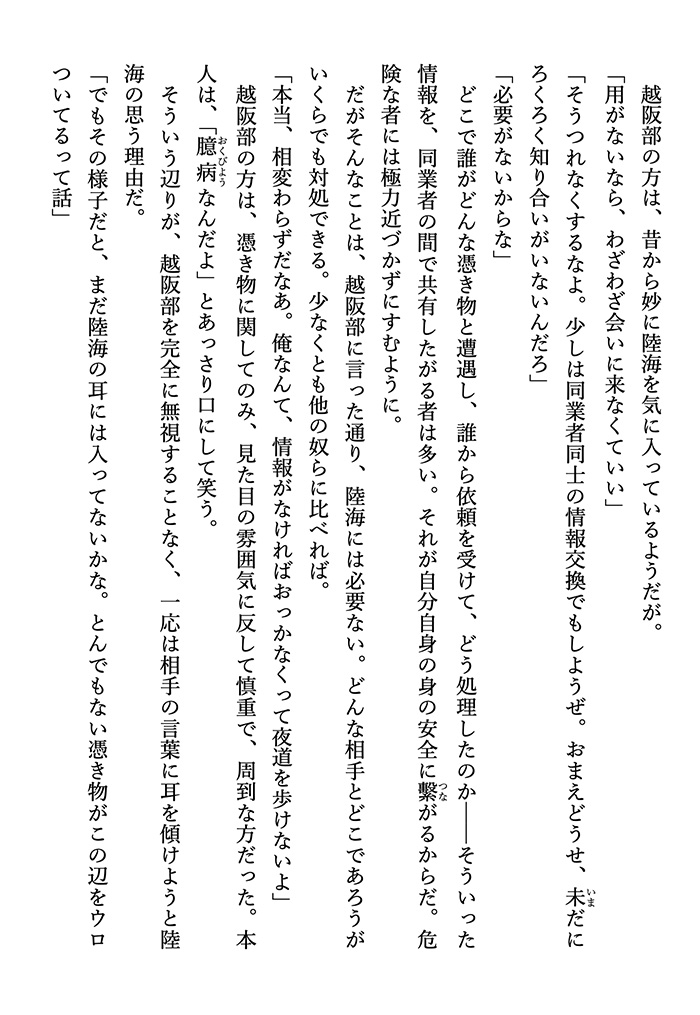 越阪部の方は、昔から妙に陸海を気に入っているようだが。
「用がないなら、わざわざ会いに来なくていい」
「そうつれなくするなよ。少しは同業者同士の情報交換でもしようぜ。おまえどうせ、未だに
ろくろく知り合いがいないんだろ」
「必要がないからな」
どこで誰がどんな憑き物と遭遇し、誰から依頼を受けて、どう処理したのか――そういった
情報を、同業者の間で共有したがる者は多い。それが自分自身の身の安全に繫がるからだ。危
険な者には極力近づかずにすむように。
だがそんなことは、越阪部に言った通り、陸海には必要ない。どんな相手とどこであろうが
いくらでも対処できる。少なくとも他の奴らに比べれば。
「本当、相変わらずだなあ。俺なんて、情報がなければおっかなくって夜道を歩けないよ」
越阪部の方は、憑き物に関してのみ、見た目の雰囲気に反して慎重で、周到な方だった。本
人は、「臆病なんだよ」とあっさり口にして笑う。
そういう辺りが、越阪部を完全に無視することなく、一応は相手の言葉に耳を傾けようと陸
海の思う理由だ。
「でもその様子だと、まだ陸海の耳には入ってないかな。とんでもない憑き物がこの辺をウロ
ついてるって話」
いま
つな
おくびょう